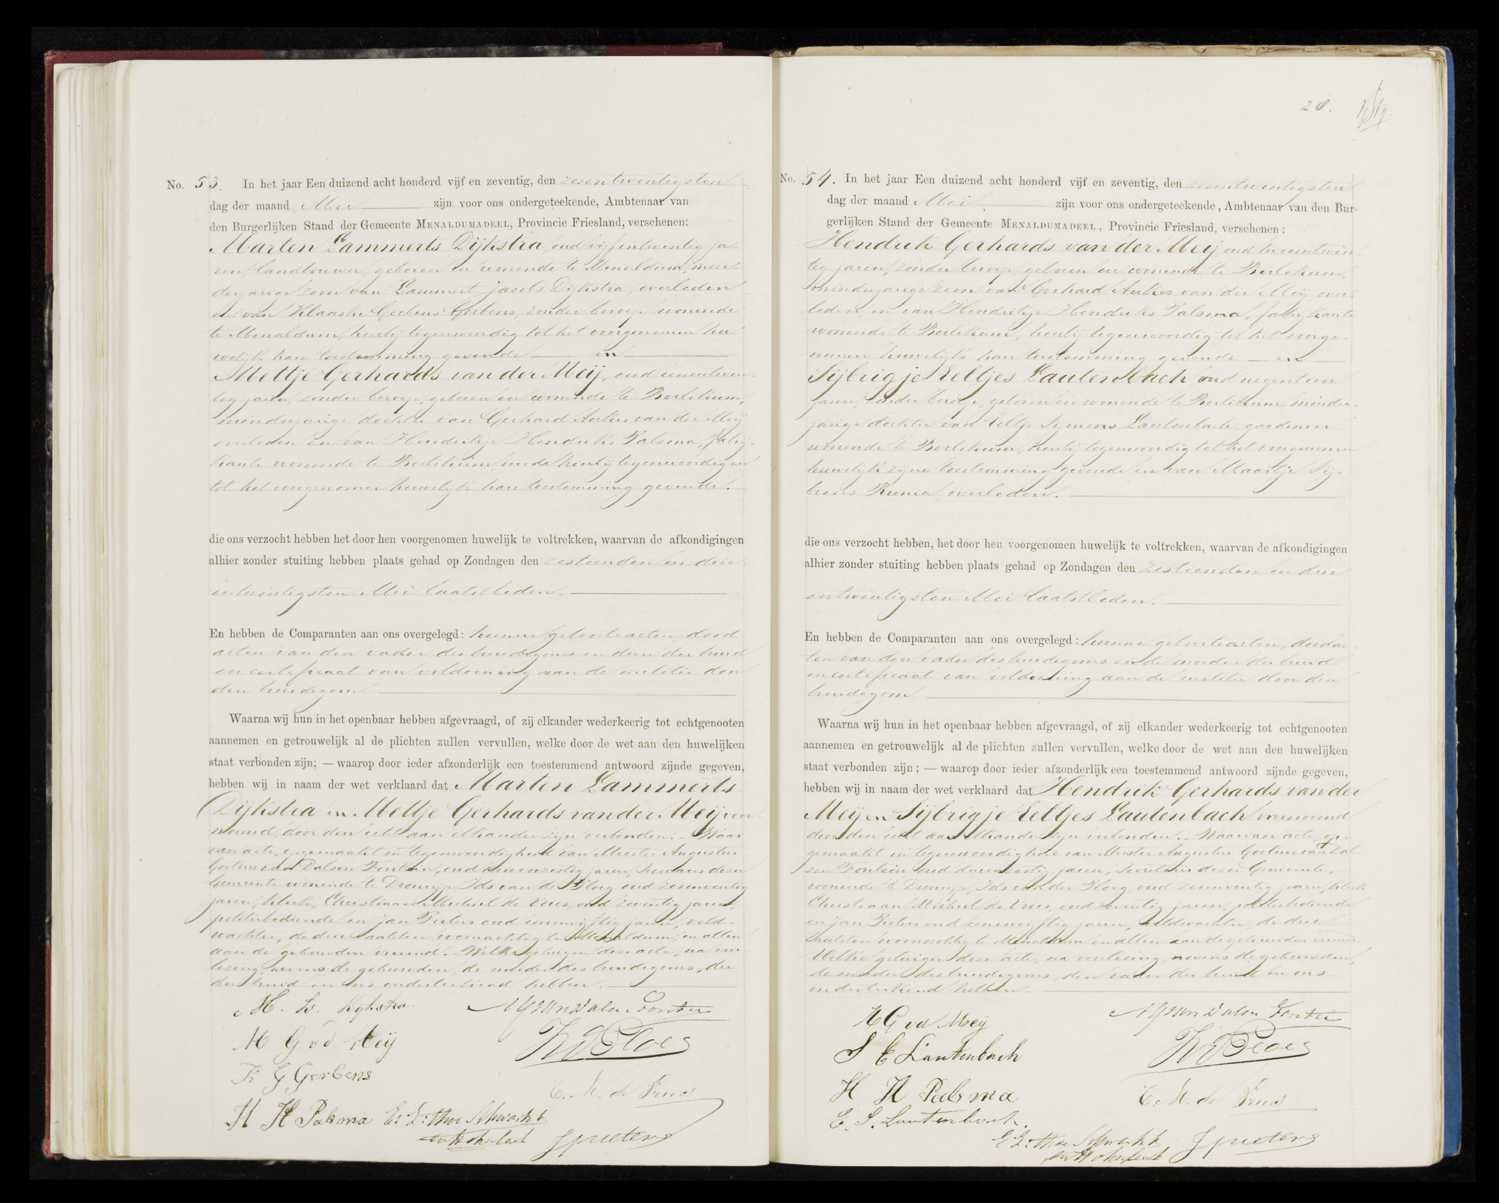 No. 53. In het jaar Een duizend acht honderd vijf en zeventig, den zesentwintigsten
dag der maand Mei zijn voor ons ondergeteekende, Ambtenaar van
den Burgerlijken Stand der Gemeente MENALDUMADEEL, Provincie Friesland, verschenen:
Marten Lammerts Dijkstra oud vijfentwintig ja-
ren, landbouwer, geboren en wonende te Menaldum, meer-
derjarige zoon van Lammert Jacobs Dijkstra, overleden
en van Klaaske Gerbens Gerbens, zonder beroep wonende
te Menaldum, hierbij tegenwoordig tot het voorgenomen hu-
welijk hare toestemming gevende en
Meltje Gerhards van der Meij, oud eenentwin-
tig jaren, zonder beroep, geboren en wonende te Berlikum,
minderjarige dochter van Gerhard Ankes van der Meij
overleden en van Hendrikje Hendriks Palsma, fabri-
kante wonende te Berlikum, mede hierbij tegenwoordig en
tot het voorgenomen huwelijk hare toestemming gevende.
die ons verzocht hebben het door hen voorgenomen huwelijk te voltrekken, waarvan de afkondigingen
alhier zonder stuiting hebben plaats gehad op Zondagen den zestienden en drie
entwintigsten Mei laatstleden.
En hebben de Comparanten aan ons overgelegd: hunne geboorteacten, dood
acten van den vader des bruidegoms en dien der bruid
en certificaat van voldoening aan de militie door
den bruidegom
Waarna wij hun in het openbaar hebben afgevraagd, of zij elkander wederkeerig tot echtgenooten
aannemen en getrouwelijk al de plichten zullen vervullen, welke door de wet aan den huwelijken
staat verbonden zijn; — waarop door ieder afzonderlijk een toestemmend antwoord zijnde gegeven,
hebben wij in naam der wet verklaard dat Marten Lammerts
Dijkstra en Meltje Gerhards van der Meij voor-
noemd door den echt aan elkander zijn verbonden. Waar
van acte, opgemaakt in tegenwoordigheid van Meester Augustus
jaren, Secretaris dezer
Gemeente wonende te Dronrijp, Ids van der Ploeg oud zesenveertig
jaren, klerk, Christiaan Michiel de Vries, oud twintig jaren,
en Jan Pieters oud eenenvijftig jaren, veld-
wachter, de drie laatsten woonachtig te Menaldum, en allen
aan de gehuwden vreemd. Welke getuigen deze acte, na voor
lezing nevens de gehuwden, de moeder des bruidegoms, die
der bruid en ons onderteekend hebben.
M. L. Dijkstra
M G v d Meij
K G Gerbens
H H Palsma
C. M. de Vries
J Pieters
20.
No. 54. In het jaar Een duizend acht honderd vijf en zeventig, den zesentwintigsten
dag der maand Mei zijn voor ons ondergeteekende, Ambtenaar van den Bur-
gerlijken Stand der Gemeente MENALDUMADEEL, Provincie Friesland, verschenen:
Hendrik Gerhards van der Meij oud
tig jaren, zonder beroep, geboren en wonende te Berlikum,
minderjarige zoon van Gerhard Ankes van der Meij over-
leden en van Hendrikje Hendriks Palsma, fabrikante
wonende te Berlikum, hierbij tegenwoordig tot het voorge-
nomen huwelijk hare toestemming gevende en
Sijbrigje Eeltjes Lautenbach oud negentien
jaren, zonder beroep, geboren en wonende te Berlikum minder-
jarige dochter van Eeltje Symons Lautenbach, gardenier
wonende te Berlikum, hierbij tegenwoordig tot het voorgenomen
huwelijk zijne toestemming gevende en van Maartje Sij-
brens Runia, overleden.
die ons verzocht hebben, het door hen voorgenomen huwelijk te voltrekken, waarvan de afkondigingen
alhier zonder stuiting hebben plaats gehad op Zondagen den zestienden en drie
entwintigsten Mei laatstleden.
En hebben de Comparanten aan ons overgelegd: hunne geboorteacten, doodac-
ten van den vader des bruidegoms en de moeder der bruid
en certificaat van voldoening aan de militie door den
bruidegom
Waarna wij hun in het openbaar hebben afgevraagd, of zij elkander wederkeerig tot echtgenooten
aannemen en getrouwelijk al de plichten zullen vervullen, welke door de wet aan den huwelijken
staat verbonden zijn; — waarop door ieder afzonderlijk een toestemmend antwoord zijnde gegeven,
hebben wij in naam der wet verklaard dat Hendrik Gerhards van der
Meij en Sijbrigje Eeltjes Lautenbach voornoemd
door den echt aan elkander zijn verbonden. Waarvan acte, op-
gemaakt in tegenwoordigheid van Meester Augustus
jaren, Secretaris dezer Gemeente,
wonende te Dronrijp, Ids van der Ploeg, oud zesenveertig jaren, klerk
Christiaan Michiel de Vries, oud twintig jaren,
en Jan Pieters oud eenenvijftig jaren, veldwachter, de drie
laatsten woonachtig te Menaldum en allen aan de gehuwden vreemd
Welke getuigen deze acte, na voorlezing nevens de gehuwden,
de moeder des bruidegoms, den vader der bruid en ons
onderteekend hebben.
H G vd Meij
S E Lautenbach
H H Palsma
E. S. Lautenbach.
C. M. de Vries
J Pieters